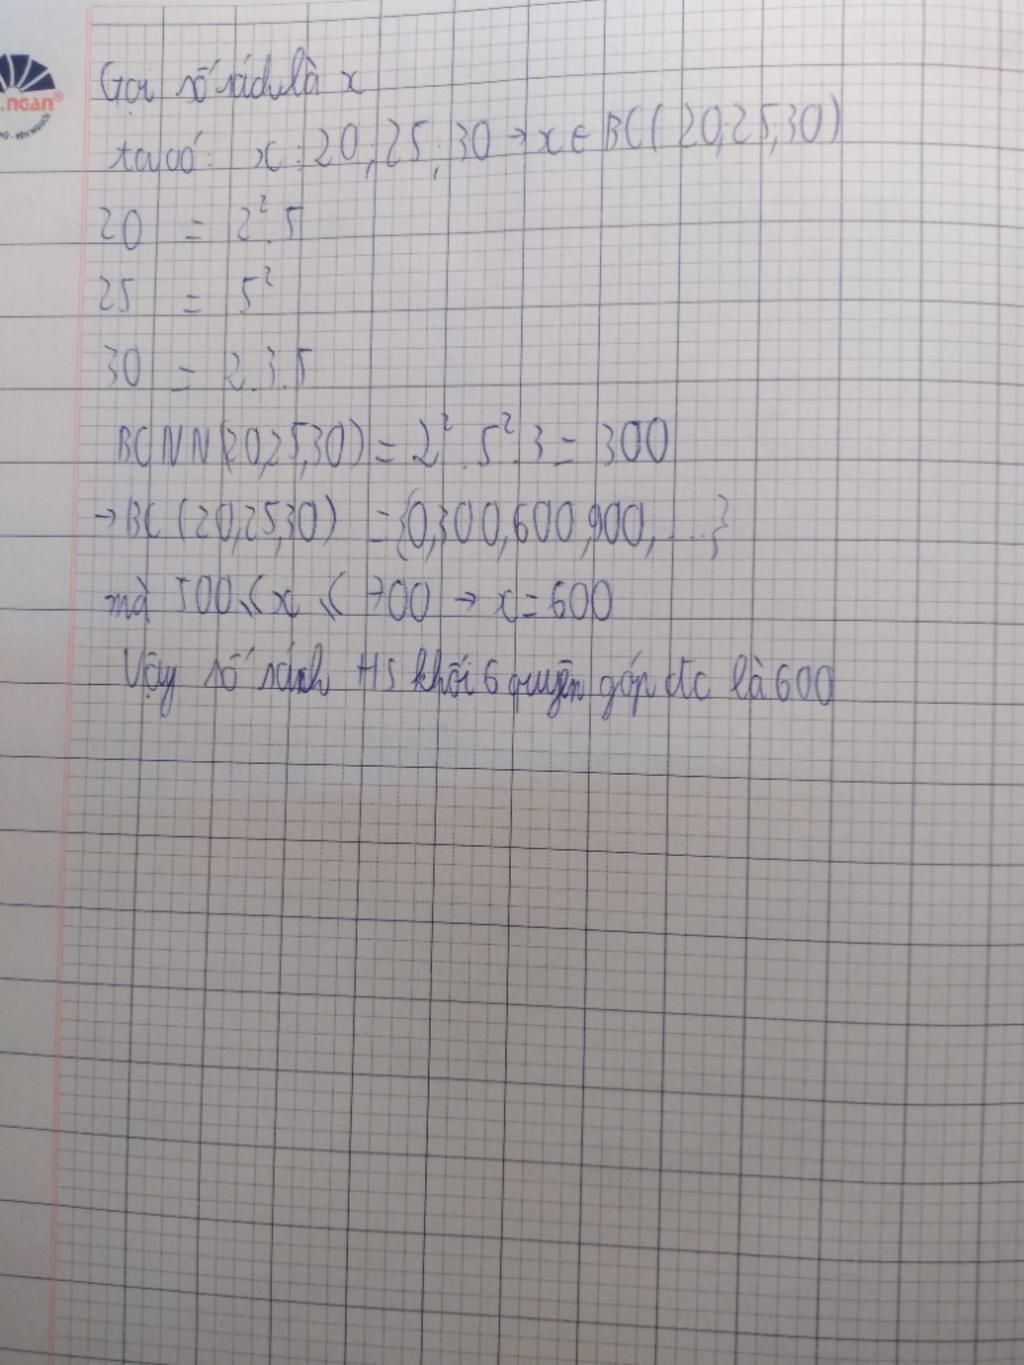 .ngan®
Gọi số sách là x
ta có: x : 20, 25, 30 → x ∈ BC(20,25,30)
20 = 2².5
25 = 5²
30 = 2.3.5
BCNN(20,25,30) = 2².5².3 = 300
→ BC(20,25,30) = {0,300,600,900,...}
mà 500 ≤ x ≤ 700 → x = 600
Vậy số sách HS khối 6 quyên góp đc là 600